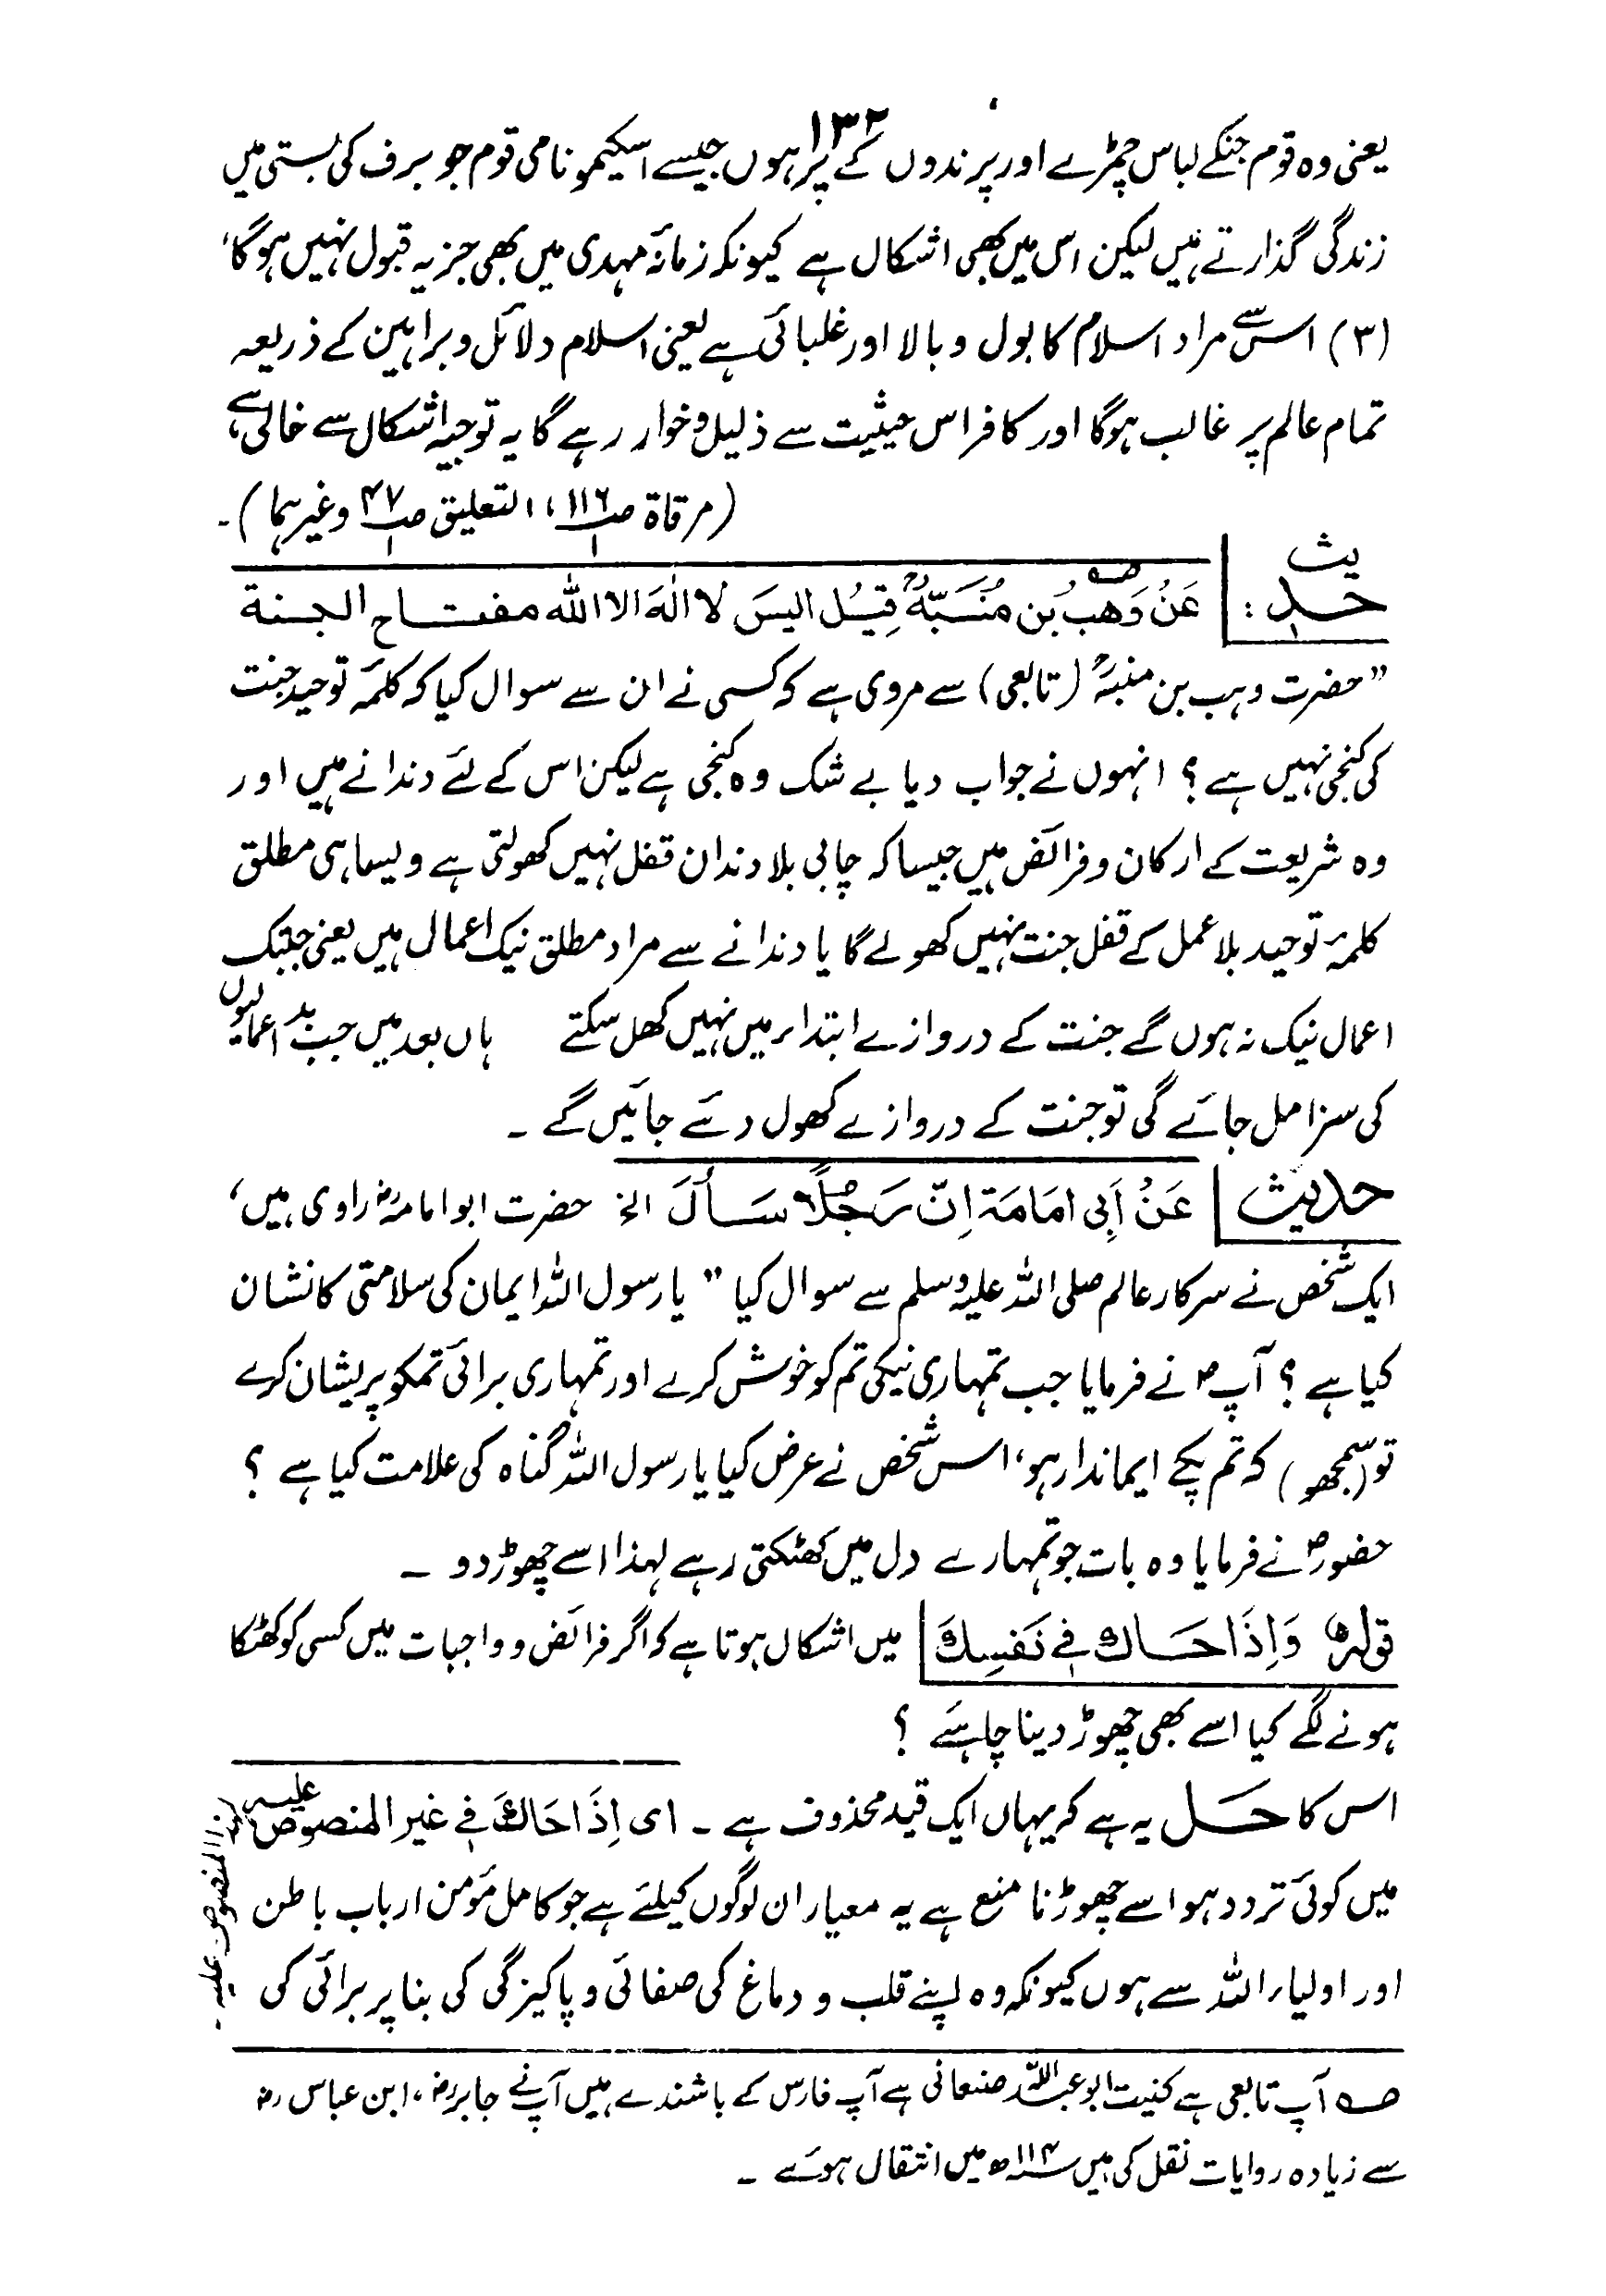 ۱۳۲
یعنی وہ قوم جنکے لباس چمڑے اور پرندوں کے پر ہوں جیسے اسکیمو نامی قوم جو برف کی بستی میں
زندگی گذارتے ہیں لیکن اس میں بھی اشکال ہے کیونکہ زمانۂ مہدی میں بھی جزیہ قبول نہیں ہوگا،
(۳) اس سے مراد اسلام کا بول و بالا اور غلبائی ہے یعنی اسلام دلائل و براہین کے ذریعہ
تمام عالم پر غالب ہوگا اور کافر اس حیثیت سے ذلیل و خوار رہے گا یہ توجیہ اشکال سے خالی ہے
(مرقاۃ ص۱۱۶/۱، التعلیق ص۴۷/۱ وغیرہما)۔
حدیث: عَنْ وَهْبِ بن مُنَبِّهٍؒ قِيْلَ اليسَ لا الٰهَ الا الله مفتاح الجنة
”حضرت وہب بن منبہؒ (تابعی) سے مروی ہے کہ کسی نے ان سے سوال کیا کہ کلمۂ توحید جنت
کی کنجی نہیں ہے؟ انہوں نے جواب دیا بے شک وہ کنجی ہے لیکن اس کے لئے دندانے ہیں اور
وہ شریعت کے ارکان و فرائض ہیں جیسا کہ چابی بلا دندان قفل نہیں کھولتی ہے ویسا ہی مطلق
کلمۂ توحید بلا عمل کے قفل جنت نہیں کھولے گا یا دندانے سے مراد مطلق نیک اعمال ہیں یعنی جبتک
اعمال نیک نہ ہوں گے جنت کے دروازے ابتداء میں نہیں کھل سکتے ہاں بعد میں جب بد اعمالیوں
کی سزا مل جائے گی تو جنت کے دروازے کھول دئے جائیں گے ۔
حدیث عَنْ أَبِی امَامَۃ اِنّ رَجُلًا سَأَلَ الخ حضرت ابو امامہؓ راوی ہیں،
ایک شخص نے سرکار عالم صلی اللہ علیہ وسلم سے سوال کیا ” یا رسول اللہ ایمان کی سلامتی کا نشان
کیا ہے ؟ آپؐ نے فرمایا جب تمہاری نیکی تم کو خوش کرے اور تمہاری برائی تمکو پریشان کرے
تو (سمجھو) کہ تم پکے ایماندار ہو، اس شخص نے عرض کیا یا رسول اللہ گناہ کی علامت کیا ہے ؟
حضورؐ نے فرمایا وہ بات جو تمہارے دل میں کھٹکتی رہے لہذا اسے چھوڑ دو ۔
قولہ وَاِذَا حَاك فی نَفسِك میں اشکال ہوتا ہے کہ اگر فرائض و واجبات میں کسی کو کھٹکا
ہونے لگے کیا اسے بھی چھوڑ دینا چاہئے ؟
اس کا حل یہ ہے کہ یہاں ایک قید محذوف ہے ۔ ای اِذَا حَاكَ فی غیر المنصوص علیہ (المنصوص علیہ
میں کوئی تردد ہو اسے چھوڑنا منع ہے یہ معیار ان لوگوں کیلئے ہے جو کامل مؤمن ارباب باطن
اور اولیاء اللہ سے ہوں کیونکہ وہ اپنے قلب و دماغ کی صفائی و پاکیزگی کی بنا پر برائی کی
صہ آپ تابعی ہے کنیت ابو عبد اللہ صنعانی ہے آپ فارس کے باشندے ہیں آپنے جابرؓ، ابن عباسؓ
سے زیادہ روایات نقل کی ہیں ۱۱۴ھ میں انتقال ہوئے ۔